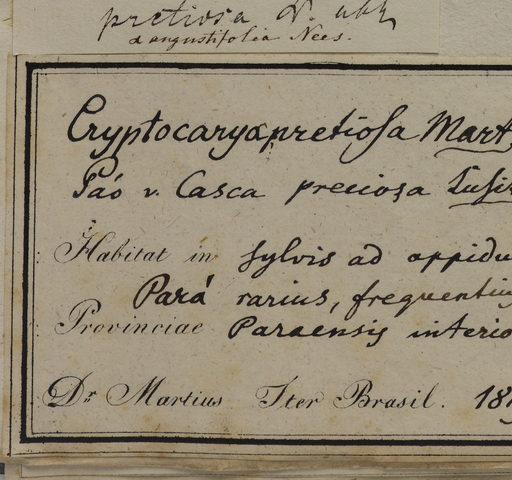 pretiosa N. ab E.
α angustifolia Nees.
Cryptocarya pretiosa Mart.
Páo v. Casca preciosa Lusi
Habitat in sylvis ad oppidu
Pará rarius, frequentius
Provinciae Paraensis interio
Dr Martius Iter Brasil. 181